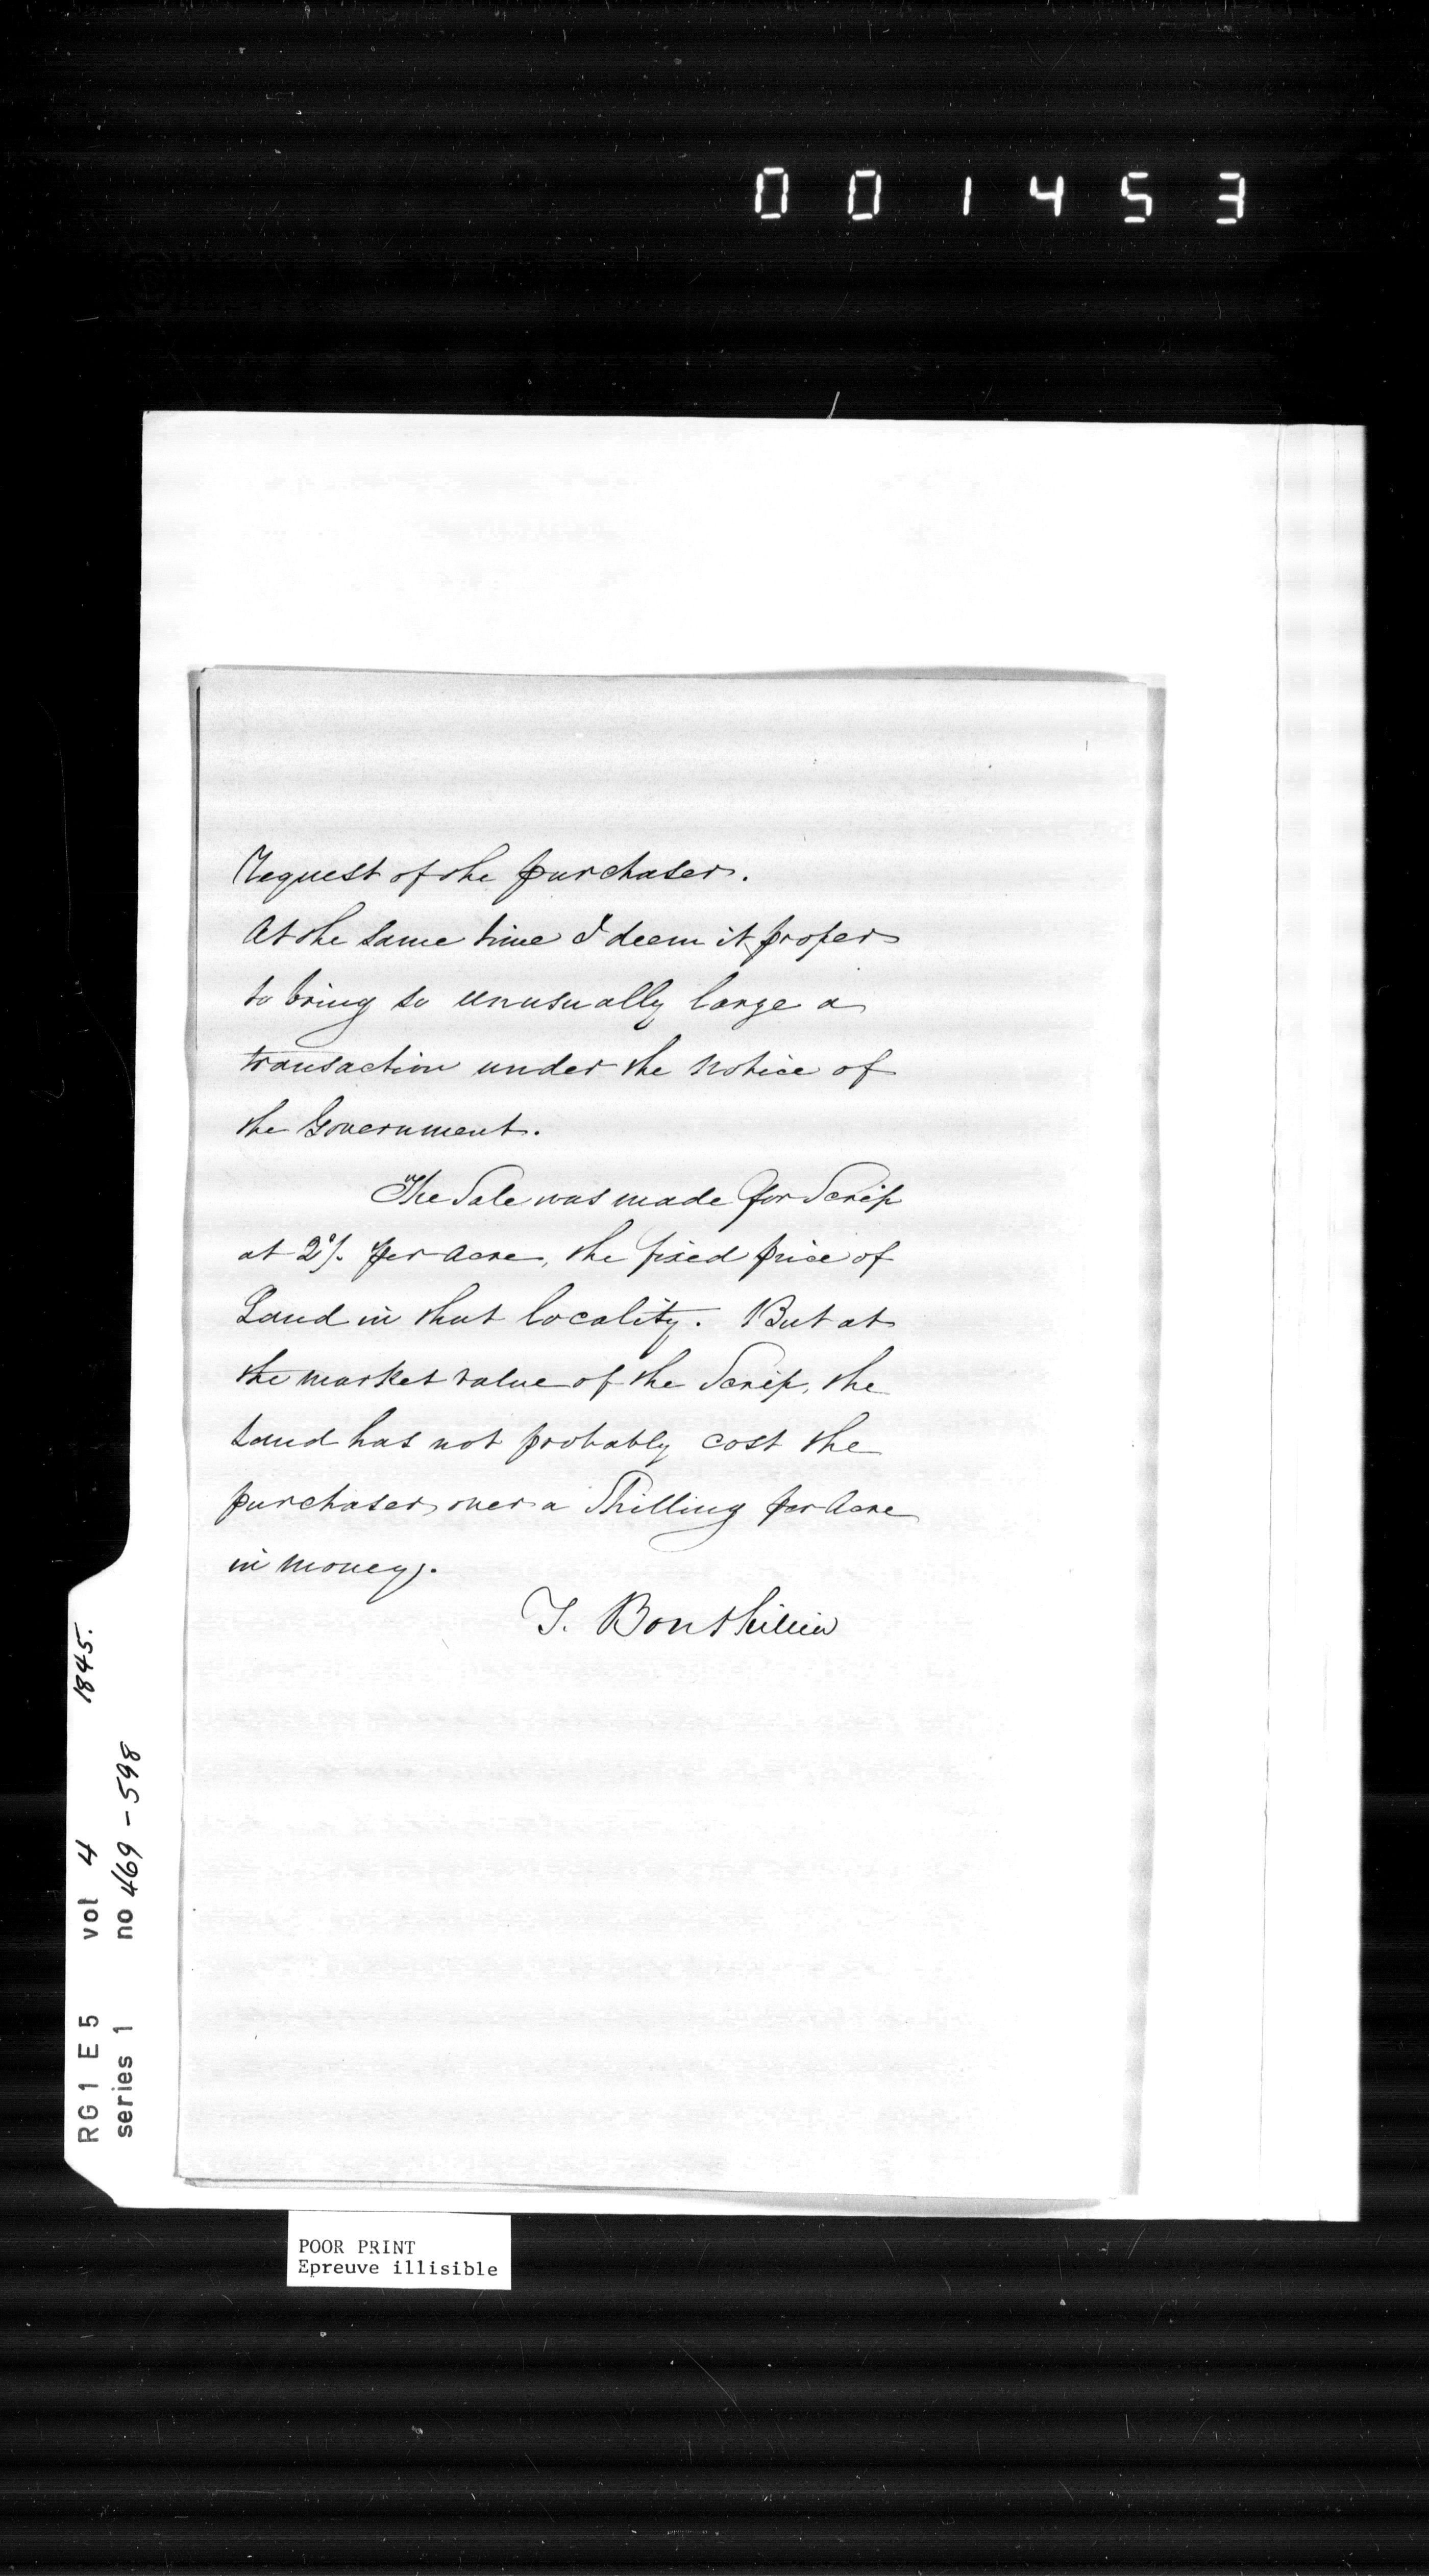 001453
request of the purchaser.
At the same time I deem it proper
to bring so unusually large a
transaction under the notice of
the Government.
The Sale was made for Scrip
at 2/. per Acre, the fixed price of
Land in that locality. But at
the market value of the Scrip, the
Land has not probably cost the
purchaser over a Shilling per Acre
in money.
T. Bouthillier
RG1 E5 vol 4 1845.
series 1 no 469-598
POOR PRINT
Epreuve illisible